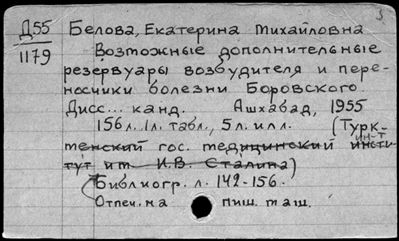 3
Д55 Белова, Екатерина Михайловна
1179 Возможные дополнительные
резервуары возбудителя и пере-
носчики болезни Боровского.
Дисс... канд. Ашхабад, 1955
156 л., 1 л. табл., 5 л. илл. (Турк-
менский гос. медицинский инсти-
ин-т
тут им. И.В. Сталина)
(Библиогр. л. 142-156.
Отпеч. на пиш. маш.